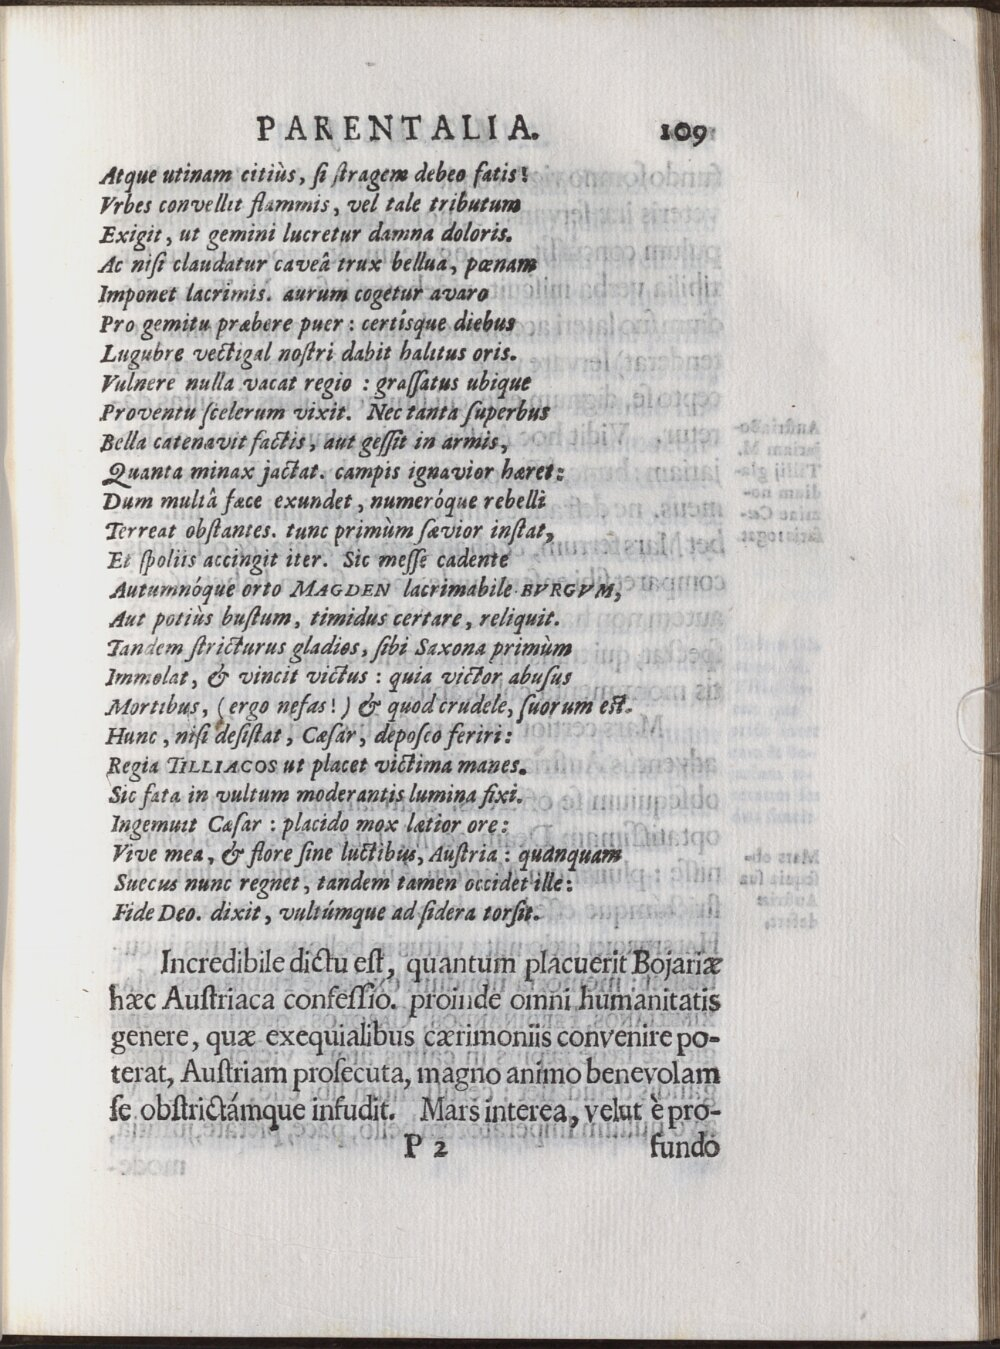 PARENTALIA. 109
Atque utinam citiùs, ſi ſtragem debeo fatis!
Vrbes convellit flammis, vel tale tributum
Exigit, ut gemini lucretur damna doloris.
Ac niſi claudatur caveâ trux bellua, pœnam
Imponet lacrimis. aurum cogetur avaro
Pro gemitu præbere puer: certísque diebus
Lugubre vectigal noſtri dabit halitus oris.
Vulnere nulla vacat regio: graſſatus ubique
Proventu ſcelerum vixit. Nec tanta ſuperbus
Bella catenavit factis, aut geſſit in armis,
Quanta minax jactat. campis ignavior hæret:
Dum multâ face exundet, numeróque rebelli
Terreat obſtantes. tunc primùm ſævior inſtat,
Et ſpoliis accingit iter. Sic meſſe cadente
Autumnóque orto MAGDEN lacrimabile BVRGVM,
Aut potiùs buſtum, timidus certare, reliquit.
Tandem ſtricturus gladios, ſibi Saxona primùm
Immolat, & vincit victus: quia victor abuſus
Mortibus, (ergo nefas!) & quod crudele, ſuorum eſt.
Hunc, niſi deſiſtat, Cæſar, depoſco feriri:
Regia TILLIACOS ut placet victima manes.
Sic fata in vultum moderantis lumina fixi.
Ingemuit Cæſar: placido mox lætior ore:
Vive mea, & flore ſine luctibus, Auſtria: quanquam
Suecus nunc regnet, tandem tamen occidet ille:
Fide Deo. dixit, vultúmque ad ſidera torſit.
Incredibile dictu eſt, quantum placuerit Bojariæ
hæc Auſtriaca confeſſio. proinde omni humanitatis
genere, quæ exequialibus cærimoniis convenire po-
terat, Auſtriam proſecuta, magno animo benevolam
ſe obſtrictámque infudit. Mars interea, velut è pro-
P 2 fundo